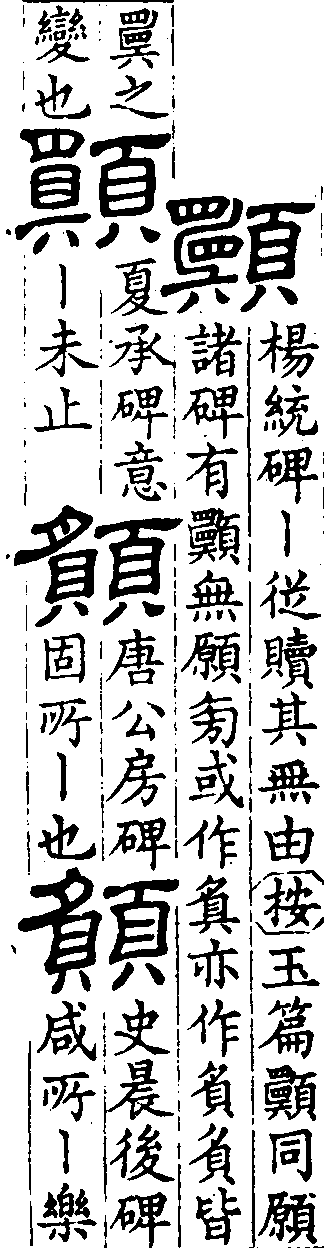 楊統碑丨從贖其無由按玉篇同願
諸碑有無願或作亦作皆
之
變也
夏承碑意
丨未止
唐公房碑
固所丨也
史晨後碑
咸所丨樂